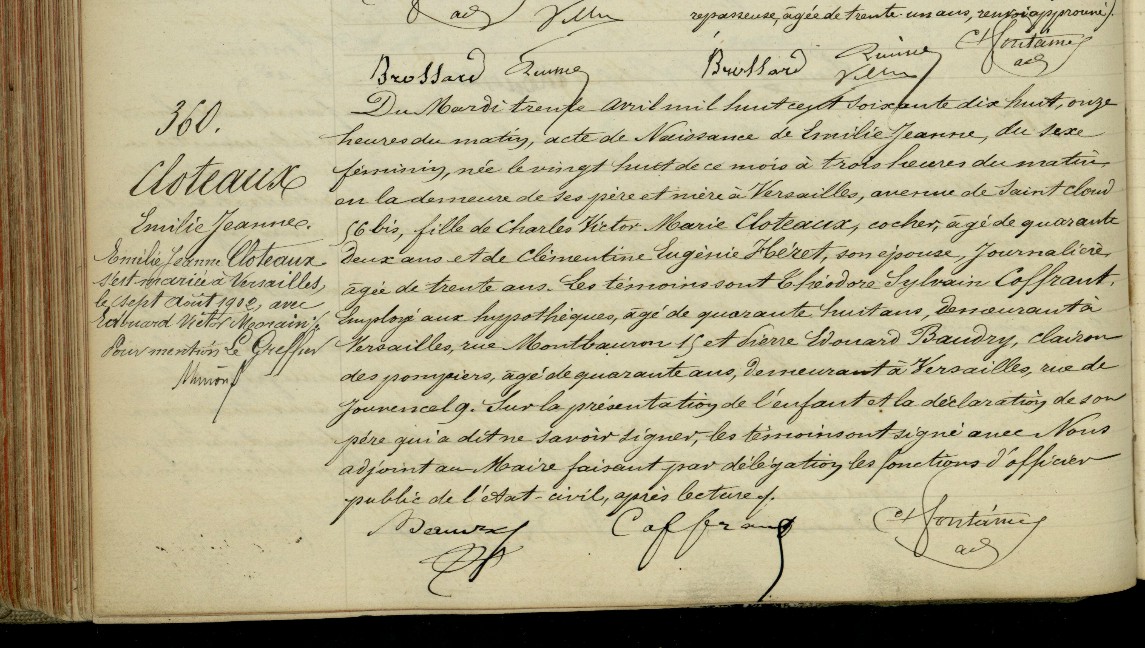 repasseuse, âgée de trente-un ans, renvoi approuvé).
Brossard
Brossard
ad
360.
Cloteaux
Emilie Jeanne
Emilie Jeanne Cloteaux
s'est mariée à Versailles,
le sept Août 1902, avec
Edouard Victor
Pour mention Le Greffier
Du Mardi trente Avril mil huit cent soixante dix huit, onze
heures du matin, acte de Naissance de Emilie Jeanne, du sexe
féminin, née le vingt huit de ce mois à trois heures du matin
en la demeure de ses père et mère à Versailles, avenue de Saint Cloud
56 bis, fille de Charles Victor Marie Cloteaux, cocher, âgé de quarante
deux ans et de Clémentine Eugénie Héret, son épouse, Journalière
âgée de trente ans. Les témoins sont Théodore Sylvain Coffrant,
Employé aux hypothèques, âgé de quarante huit ans, Demeurant à
Versailles, rue Montbauron 15 et Pierre Edouard Baudry, clairon
des pompiers, âgé de quarante ans, demeurant à Versailles, rue de
Jouvencel 9. Sur la présentation de l'enfant et la déclaration de son
père qui a dit ne savoir signer, les témoins ont signé avec Nous
adjoint au Maire faisant par délégation les fonctions d'officier
public de l'état-civil, après lecture.
Coffrant
ad